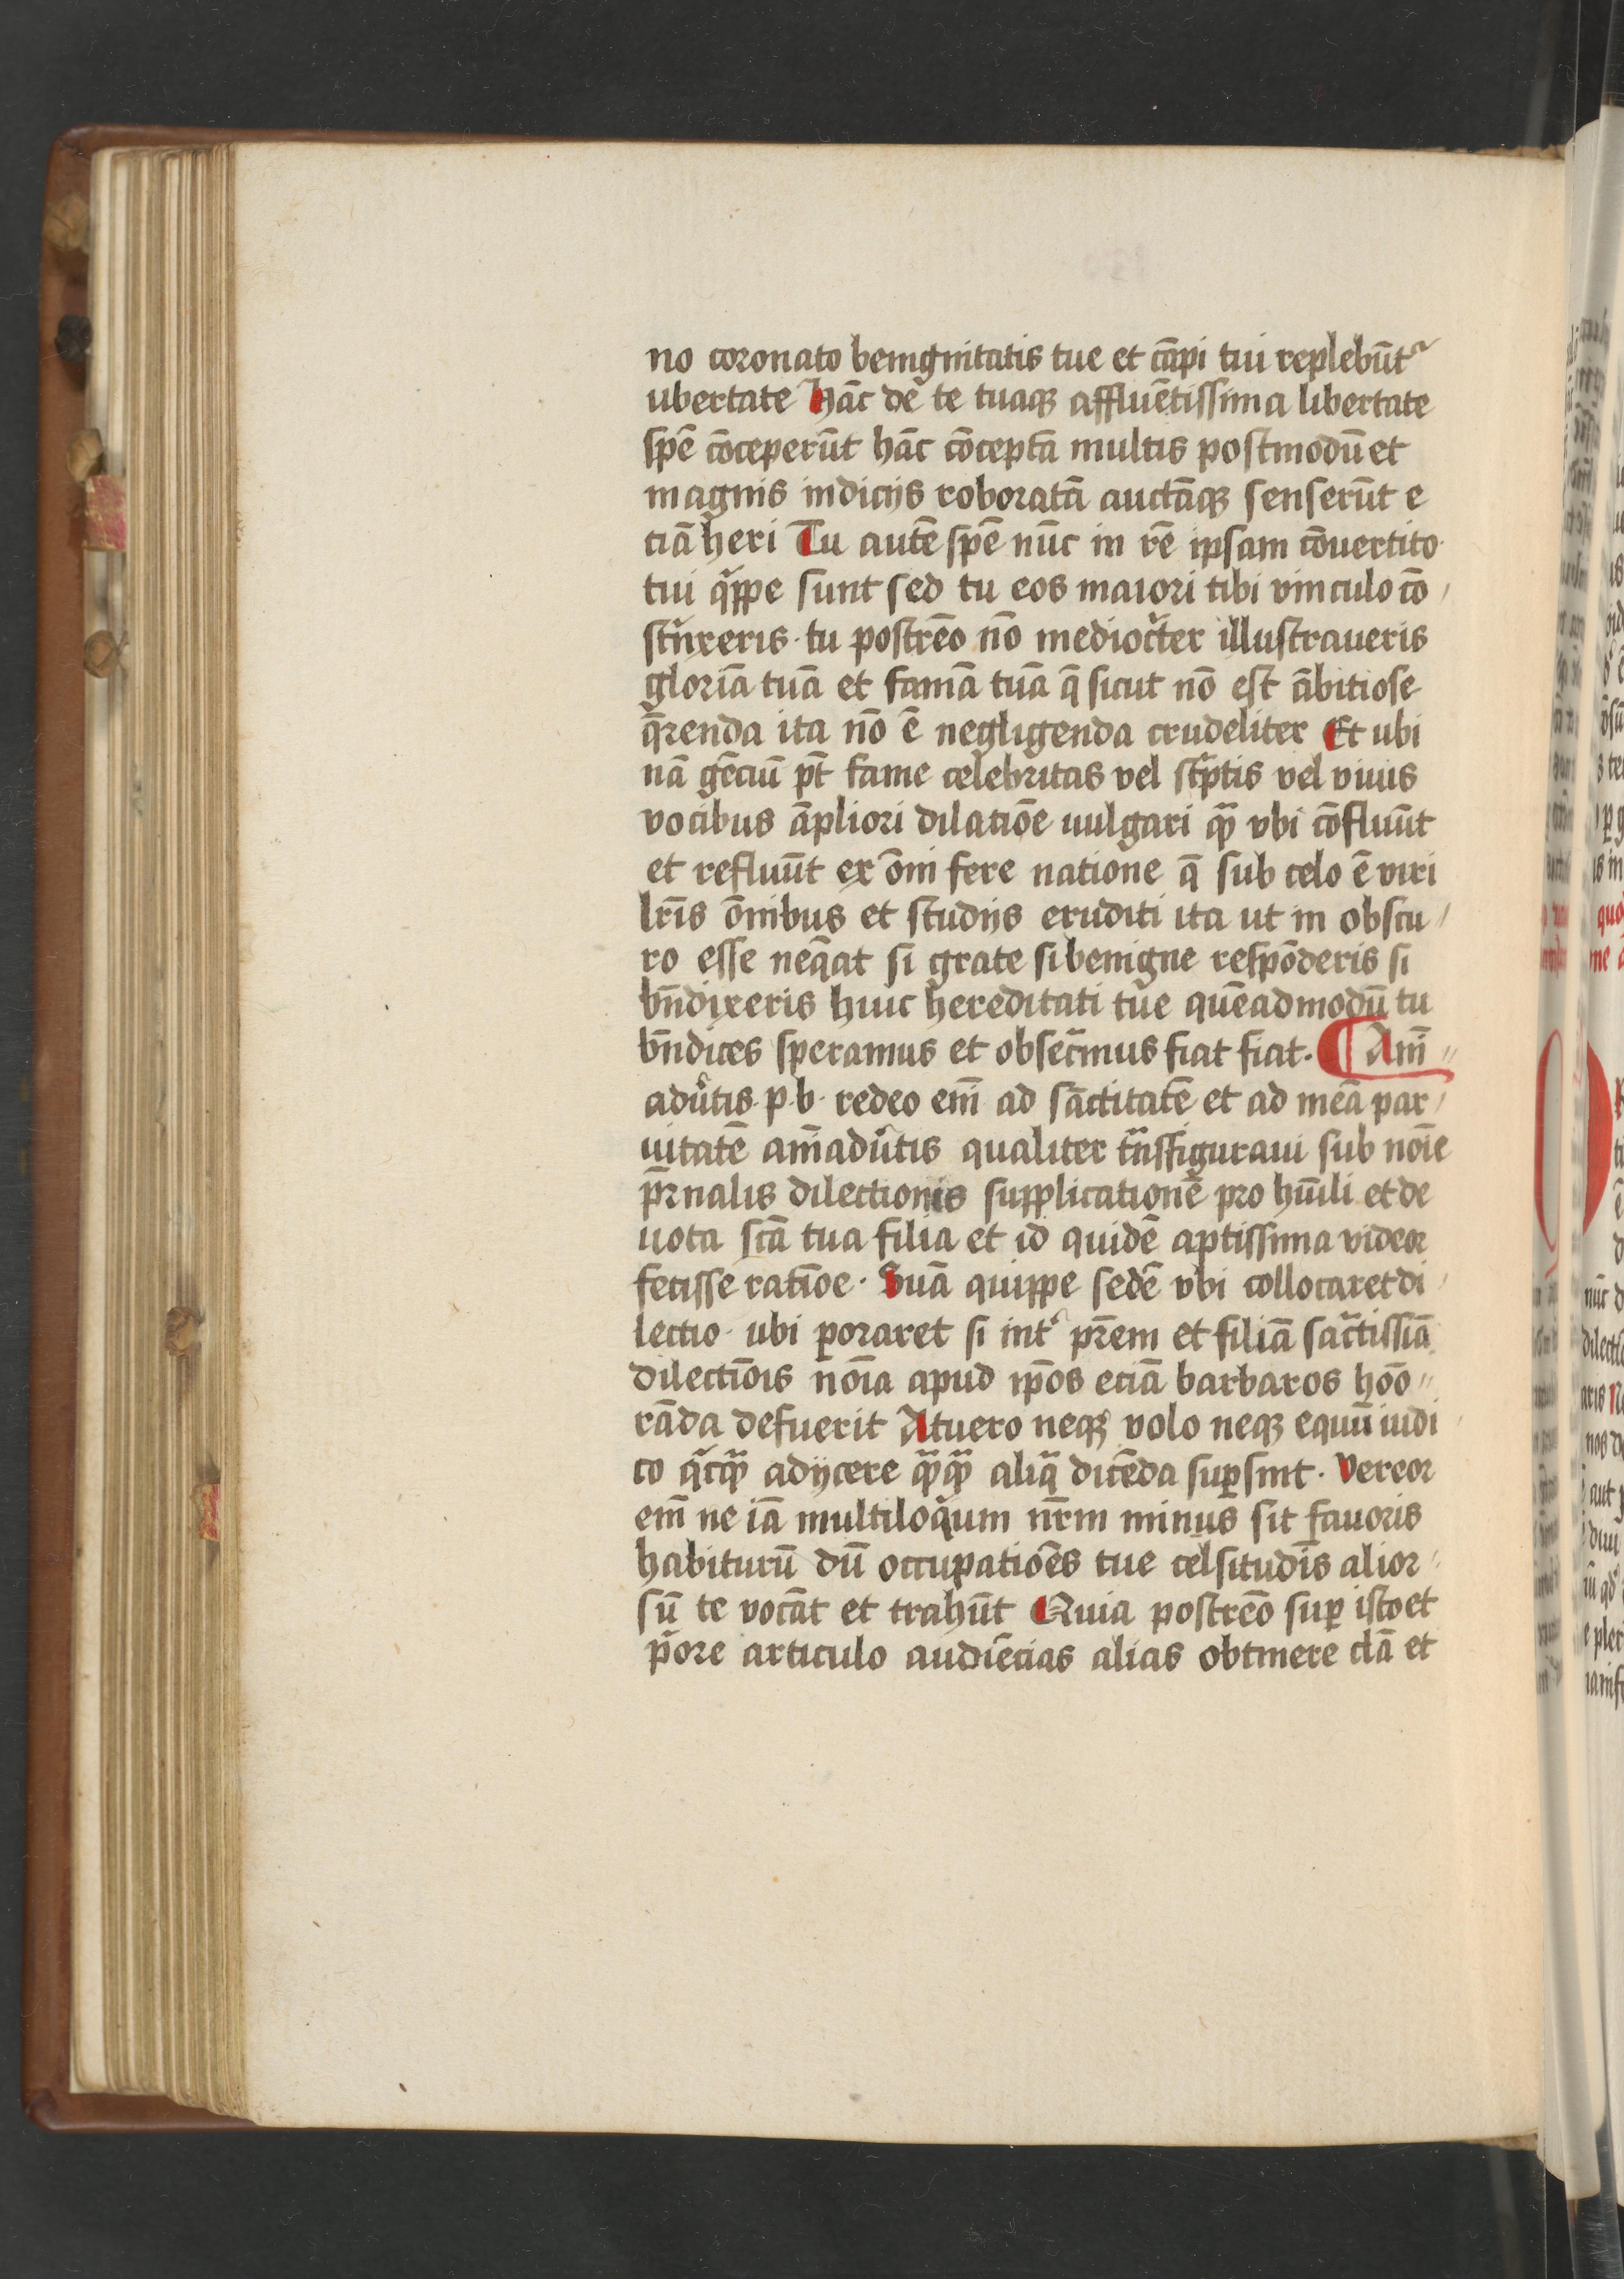 no coronato benignitatis tue et cāpi tui replebūtᷣ
ubertate Hāc de te tuaqꝫ affluētissima libertate
spē cōceperūt hāc cōceptā multis postmodū et
magnis indicijs roboratā auctāqꝫ senserūt e
ciā heri Tu autē spē nūc in rē ipsam cōuertito
tui qͥppe sunt sed tu eos maiori tibi vinculo cō
stͥnxeris · tu postrēo nō mediocͥter illustraueris
gloriā tuā et famā tuā q̄ sicut nō est ābitiose
q̄renda ita nō ē negligenda crudeliter Et ubi
nā gēciū pt̄ fame celebritas vel scͥptis vel viuis
vocibus āpliori dilatiōe uulgari qͣꝫ vbi cōfluūt
et refluūt ex ōni fere natione q̄ sub celo ē viri
lr̄is ōnibus et studijs eruditi ita ut in obscu
ro esse neq̄at si grate si benigne respōderis si
bn̄dixeris huic hereditati tue quēadmodū tu
bn̄dices speramus et obsecͣmus fiat fiat. ¶ Aīm
adūtis · p · b · redeo em̄ ad sāctitatē et ad meā par
uitatē aīmadūtis qualiter tͣnsfiguraui sub noīe
pr̄nalis dilectionis supplicationē pro hūili et de
uota scā tua filia et id quidē aptissima videor
fecisse ratiōe · Suā quippe sedē vbi collocaret di
lectio · ubi ꝑoraret si intᷣ pr̄em et filiā sāctissiā
dilectiōis noīa apud ip̄os eciā barbaros hōo
rāda defuerit At uero neqꝫ volo neqꝫ equū iudi
co qͥcqͣꝫ adijcere qͣꝫqͣꝫ aliq̄ dicēda suꝑsint · Vereor
em̄ ne iā multiloqͥum nr̄m minus sit fauoris
habiturū dū occupatiōes tue celsitudīs alior
sū te vocāt et trahūt Quia postrēo suꝑ isto et
pͥore articulo audiēcias alias obtinere clā et